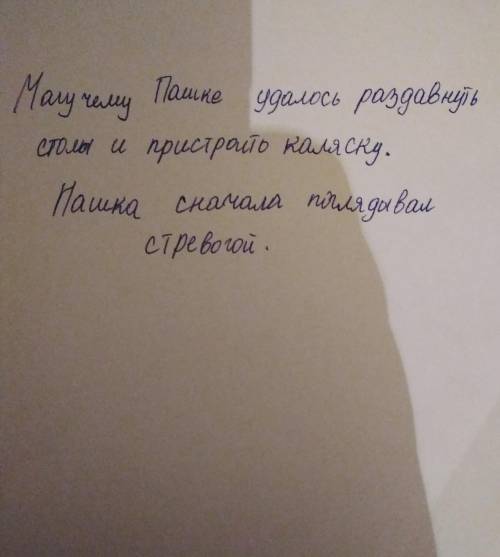 Магучему Пашке удалось раздавнуть
столы и пристраить каляску.
Пашка сначала поглядывал
стревогой.